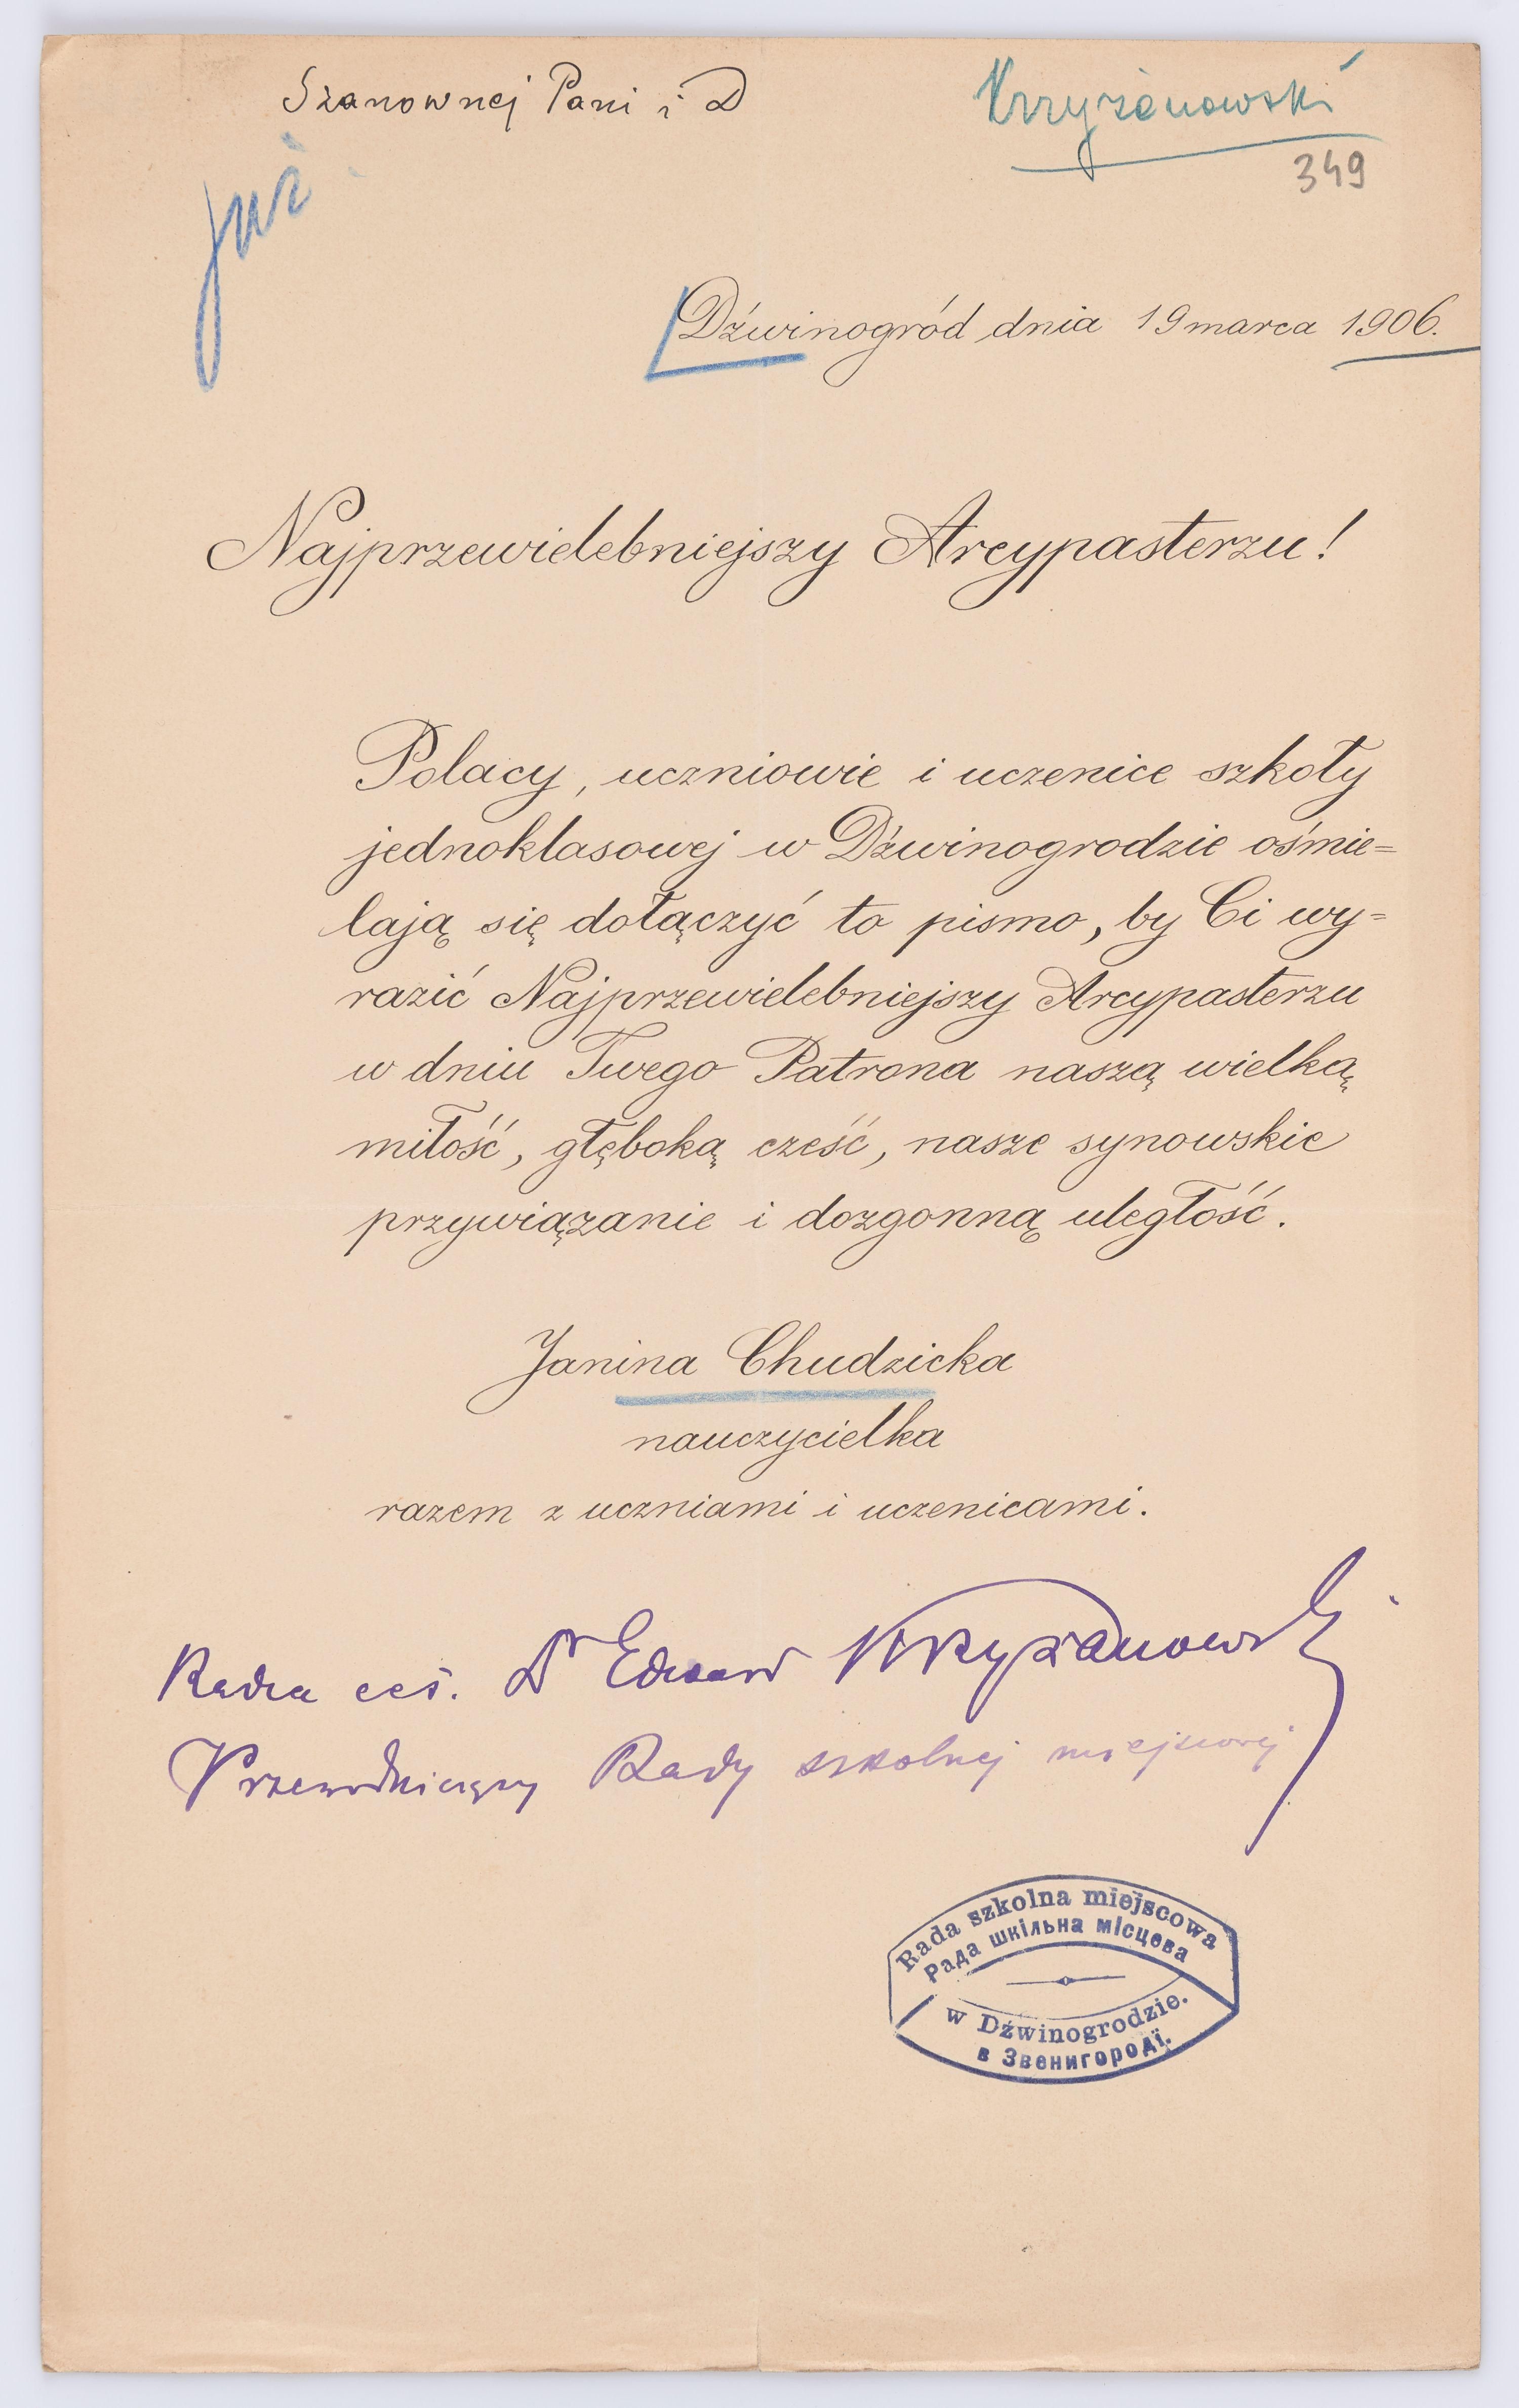 Szanownej Pani i D
Krzyżanowski
349
już
Dźwinogród dnia 19 marca 1906.
Najprzewielebniejszy Arcypasterzu!
Polacy, uczniowie i uczenice szkoły
jednoklasowej w Dźwinogrodzie ośmie=
lają się dołączyć to pismo, by Ci wy=
razić Najprzewielebniejszy Arcypasterzu
w dniu Twego Patrona naszą wielką
miłość, głęboką cześć, nasze synowskie
przywiązanie i dozgonną uległość.
Janina Chudzicka
nauczycielka
razem z uczniami i uczenicami.
Radca ces. Dr Edward Krzyżanowski
Przewodniczący Rady szkolnej miejscowej
Rada szkolna miejscowa
Рада шкільна місцева
w Dźwinogrodzie.
в Звенигородї.